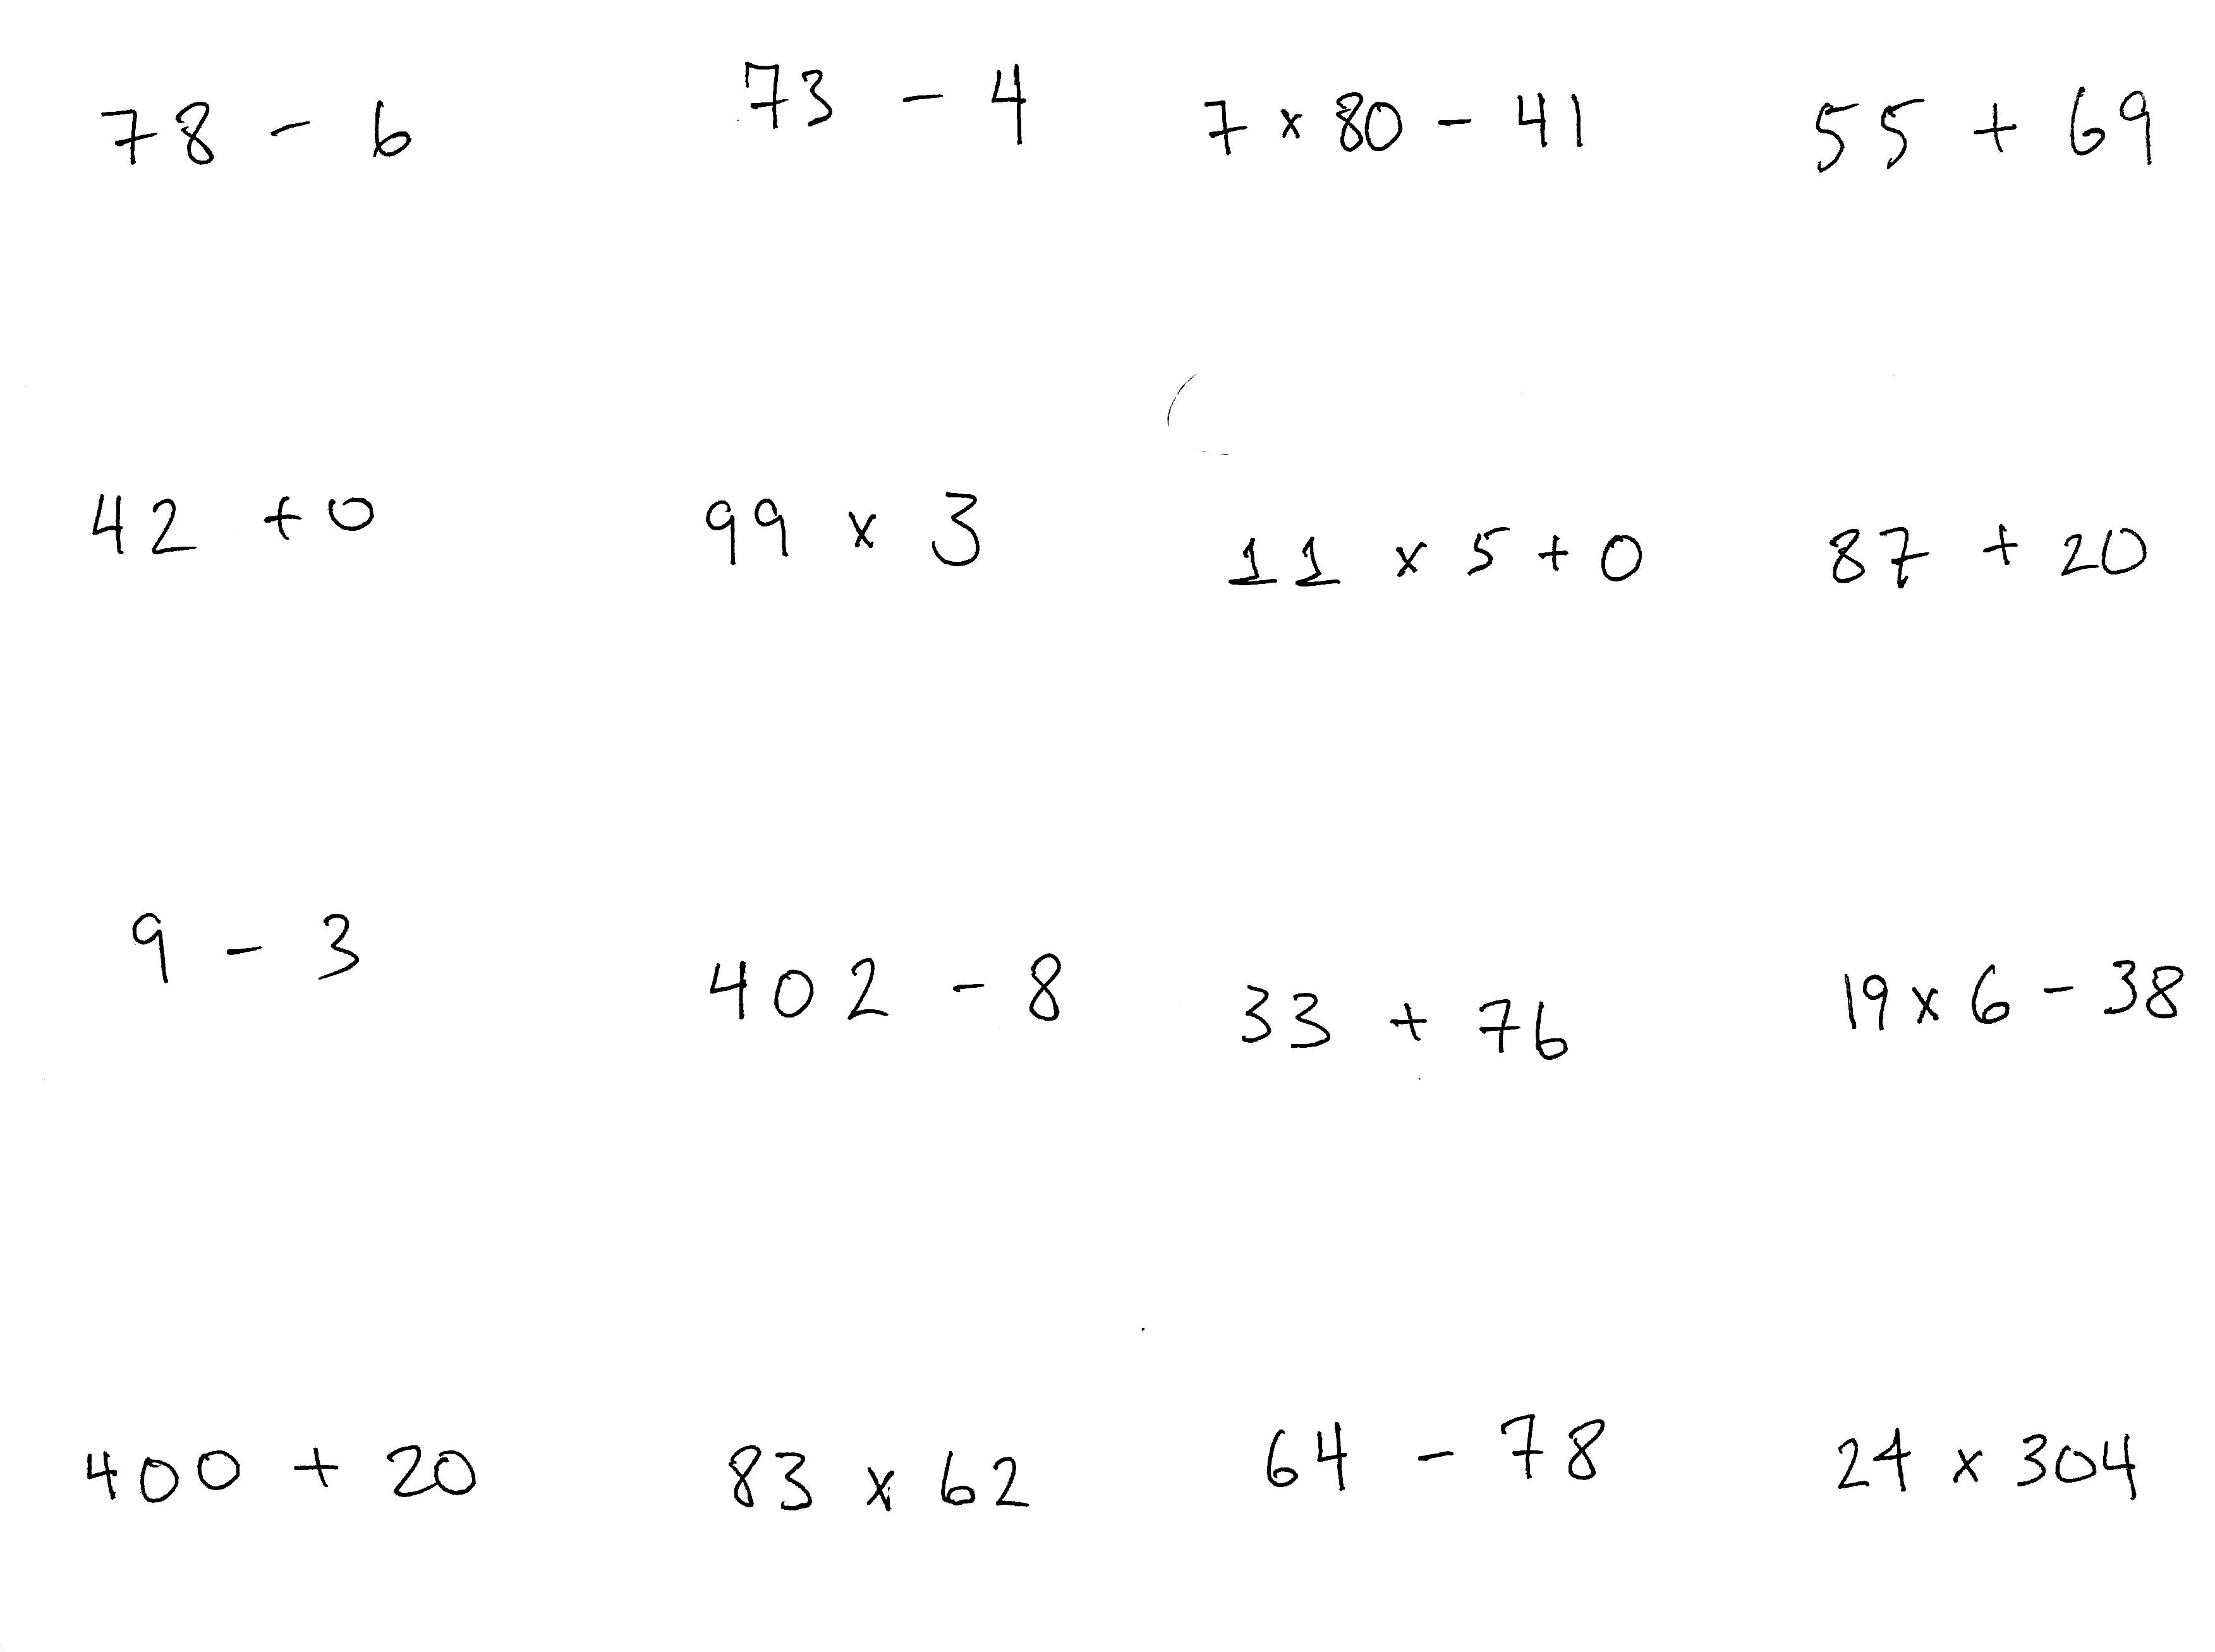 78 - 6
73 - 4
7 x 80 - 41
55 + 69
42 + 0
99 x 3
11 x 5 + 0
87 + 20
9 - 3
402 - 8
33 + 76
19 x 6 - 38
400 + 20
83 x 62
64 - 78
24 x 304